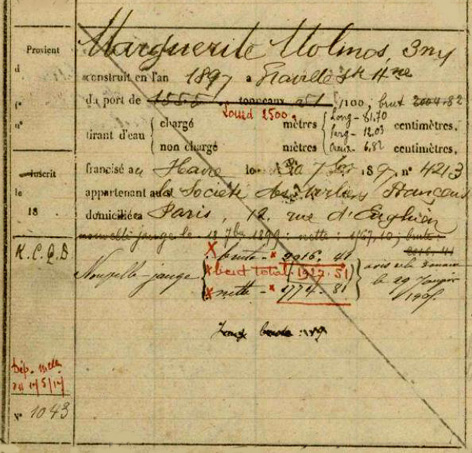 Provient
Marguerite Molinos, 3 m
d
construit en l'an 1897 à Graville Ste Hne
du port de 1555 tonneaux 51 /100, brut 2004-82
Lourd 2500
n°
tirant d'eau { chargé mètres { Long - 81.70 centimètres.
Larg - 12.03
non chargé mètres { Creux - 6.82 centimètres.
francisé au Havre le 7 189 n° 4213
inscrit
appartenant à la Société des Voiliers Français
le
domiciliée Paris, 12, rue d'Enghien
18
nouvelle jauge le 18 7bre 1899: nette: 1767,10; brute
K.C.Q.B
Nouvelle jauge { x brute - x 2016. 41
x brut total - 1922. 51
x nette - x 1774 - 81
29 Janvier
Dép.
au 14/5/17
n° 1043